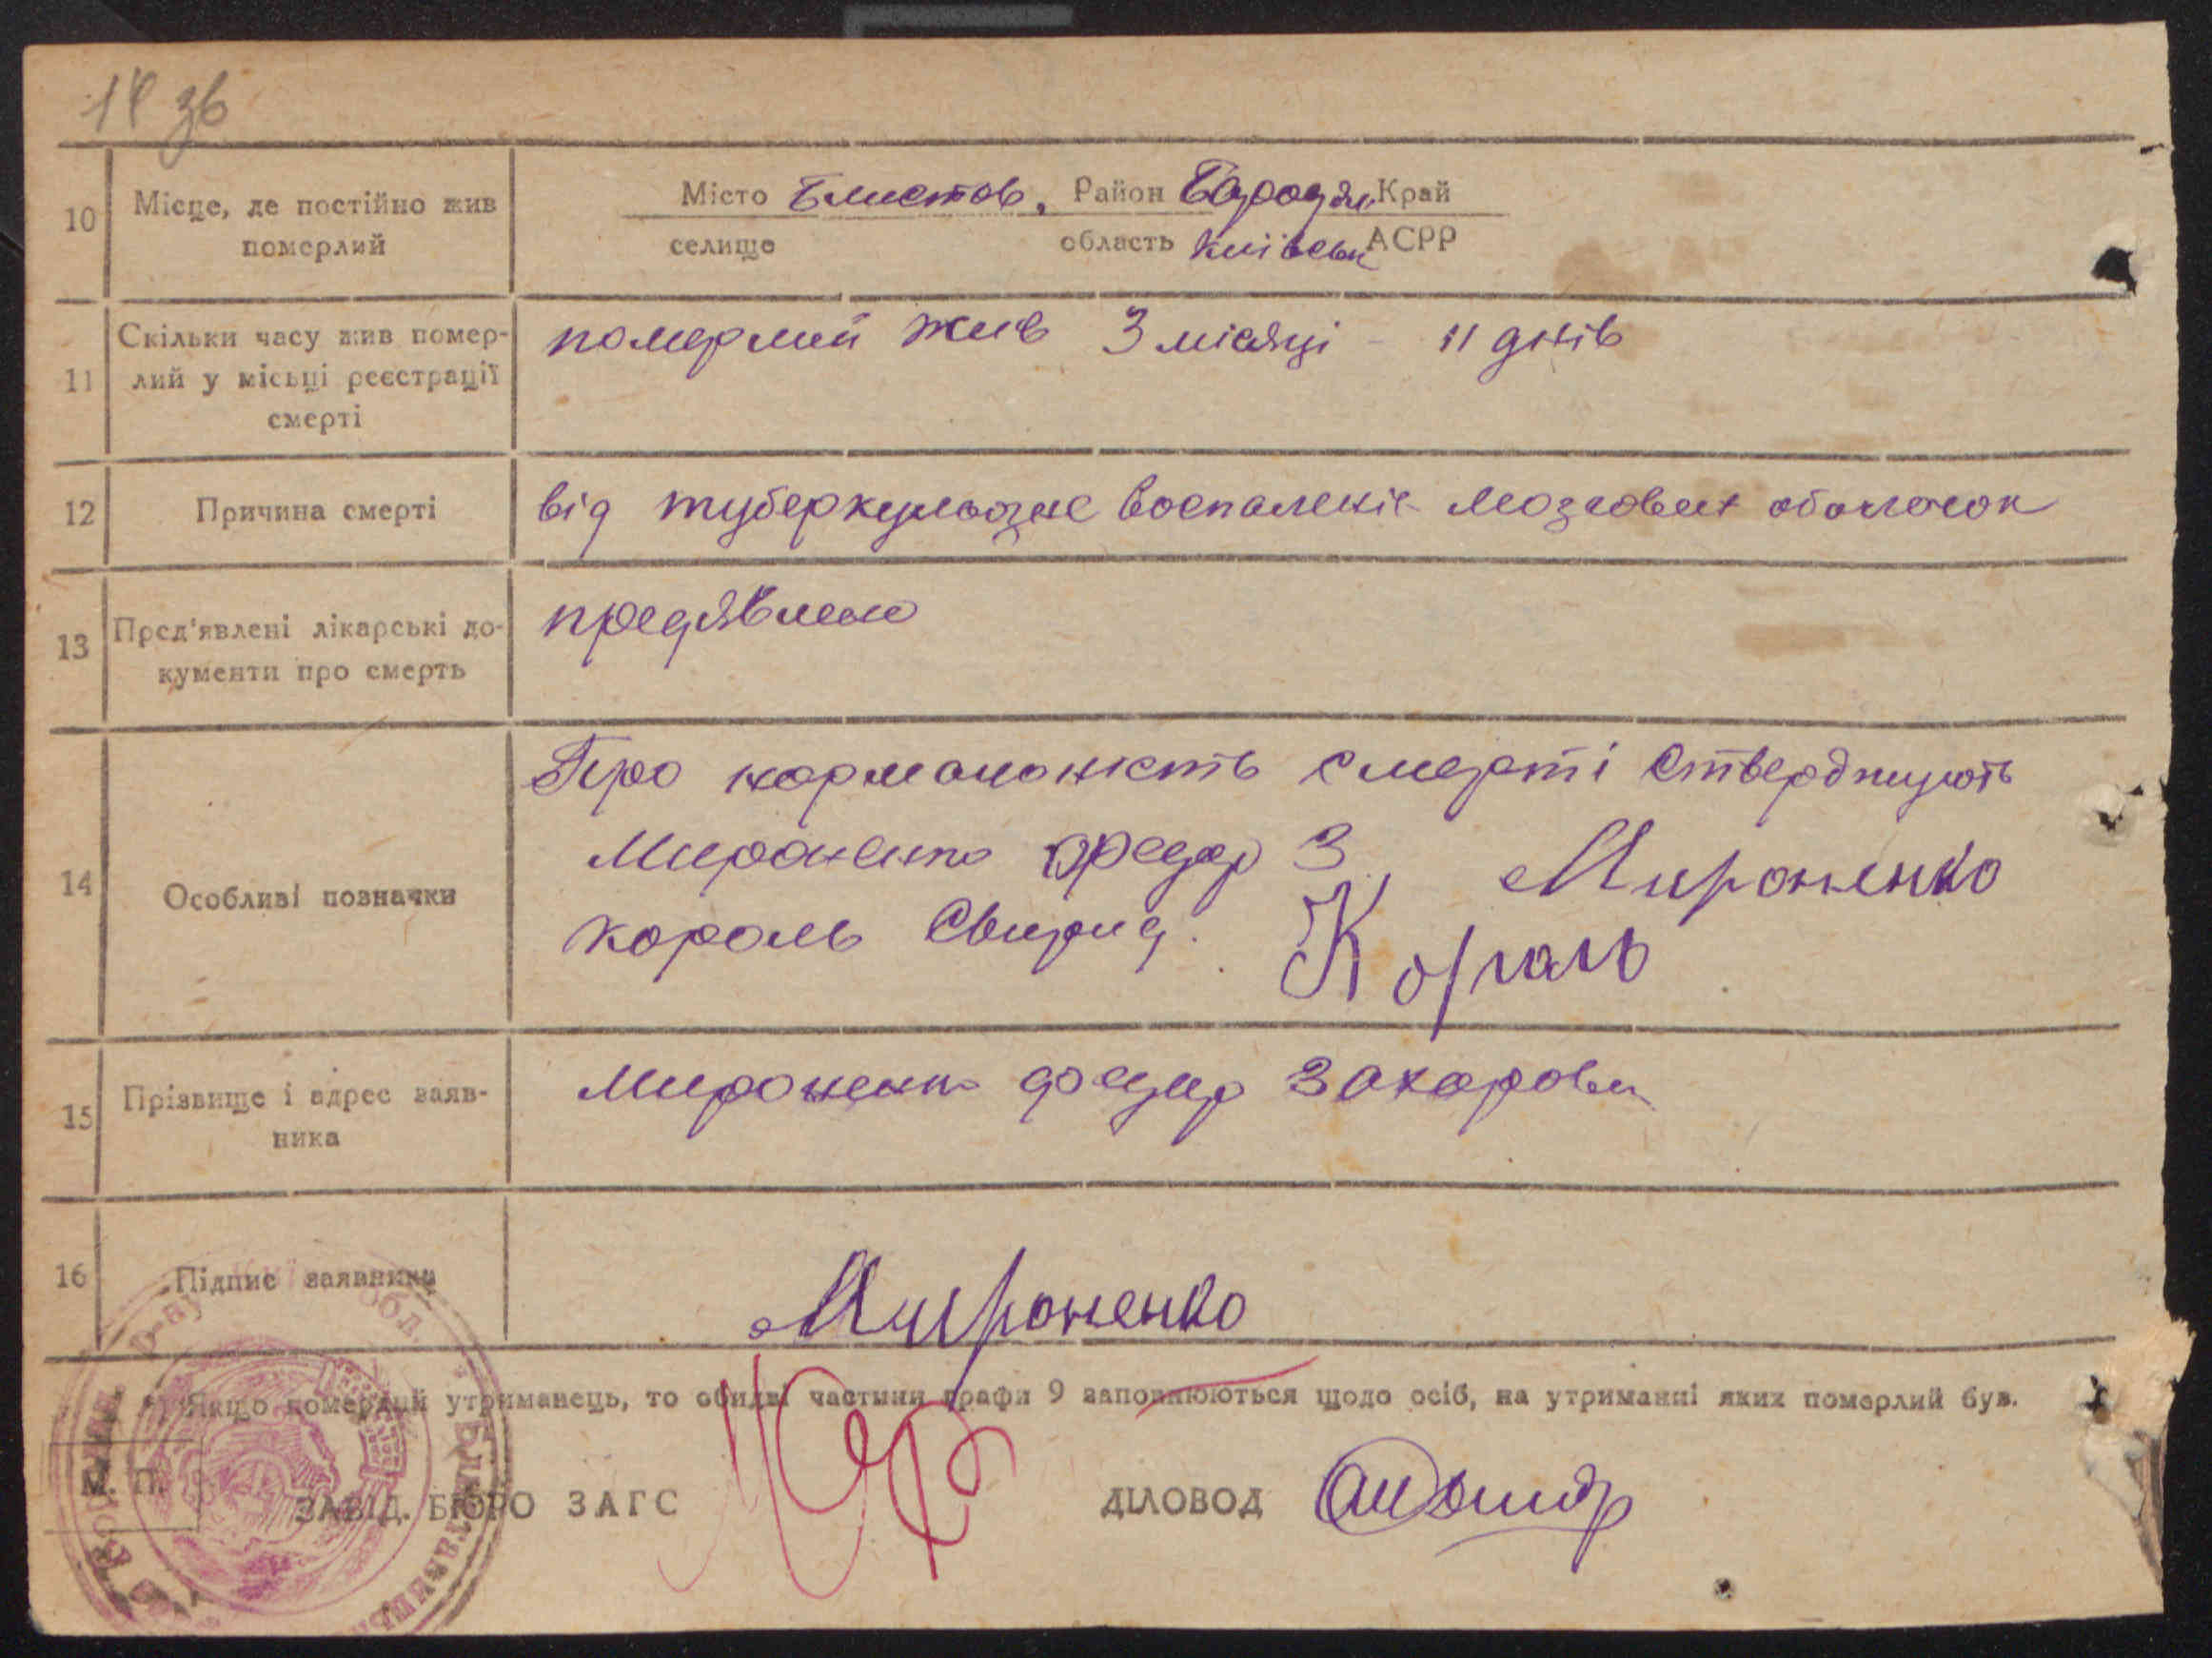 14 зв
10 Місце, де постійно жив померлий
Місто Блистов, Район Бародян. Край
селище область Київськ АСРР
11 Скільки часу жив помер-
лий у місьці реєстрації
смерті
померлий жив 3 місяці - 11 днів
12 Причина смерті від туберкульозне воспаленіє мозгових оболочок
13 Пред'явлені лікарські до-
кументи про смерть
предявлено
14 Особливі позначки
Про нормальность смерті стверджують
Мироненко Федор З. Мироненко
король Свирид. Король
15 Прізвище і адрес заяв-
ника
Мироненко Федир Захарови
16 Підпис заявника
Мироненко
*) Якщо померлий утриманець, то обидві частини графи 9 заповнюються щодо осіб, на утриманні яких померлий був.
М. П.
ЗАВІД. БЮРО ЗАГС ДІЛОВОД